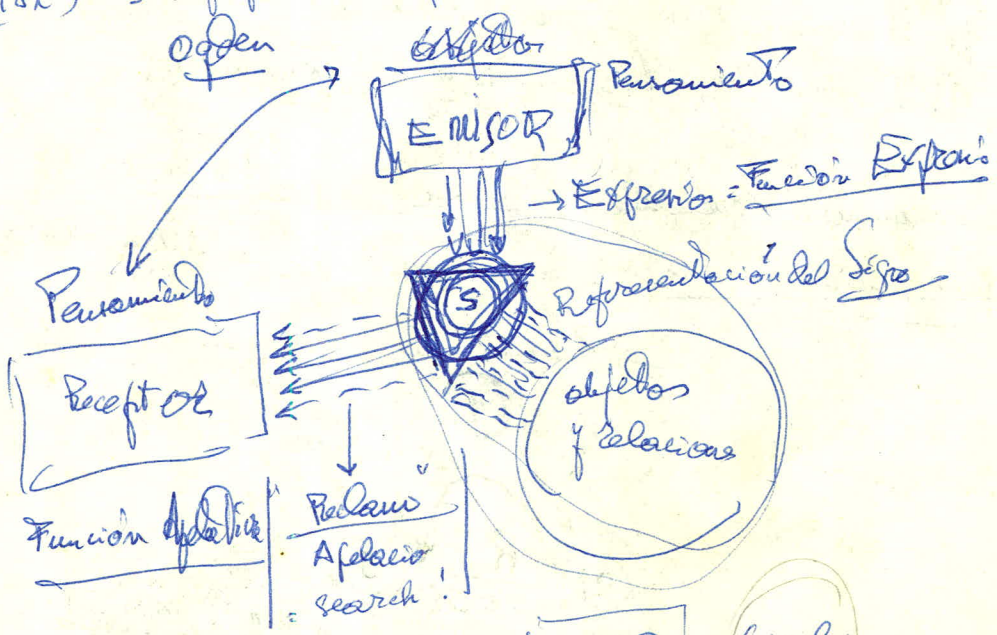 Ogden
Pensamiento
EMISOR
→ Expresión = Función Expresi
Representación del Signo
S
Pensamiento
Receptor
objetos
y relaciones
Función Apelativa
Reclamo
Apelacio
= search!